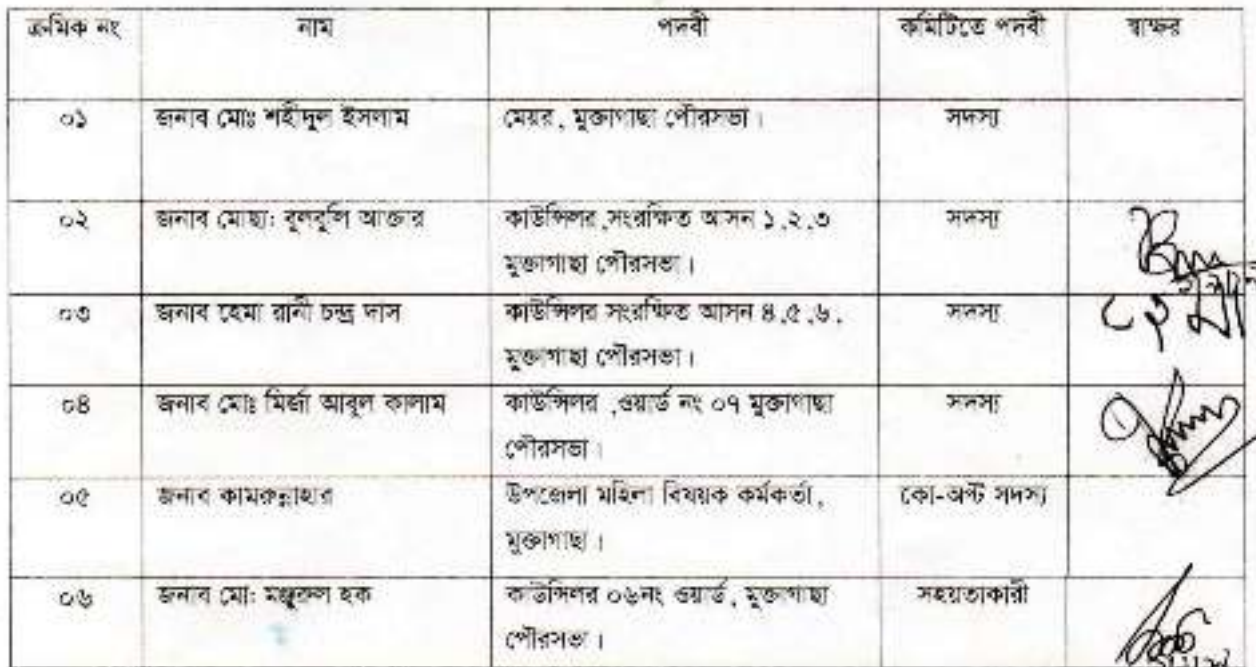 ক্রমিক নং নাম পদবী কমিটিতে পদবী স্বাক্ষর
০১ জনাব মোঃ শহীদুল ইসলাম মেয়র, মুক্তাগাছা পৌরসভা। সদস্য
০২ জনাব মোছা: বুলবুলি আক্তার কাউন্সিলর ,সংরক্ষিত আসন ১,২,৩ সদস্য
মুক্তাগাছা পৌরসভা।
০৩ জনাব হেমা রানী চন্দ্র দাস কাউন্সিলর সংরক্ষিত আসন ৪,৫,৬, সদস্য
মুক্তাগাছা পৌরসভা।
০৪ জনাব মোঃ মির্জা আবুল কালাম কাউন্সিলর ,ওয়ার্ড নং ০৭ মুক্তাগাছা সদস্য
পৌরসভা।
০৫ জনাব কামরুন্নাহার উপজেলা মহিলা বিষয়ক কর্মকর্তা, কো-অপ্ট সদস্য
মুক্তাগাছা।
০৬ জনাব মো: মঞ্জুরুল হক কাউন্সিলর ০৬নং ওয়ার্ড, মুক্তাগাছা সহয়তাকারী
পৌরসভা।